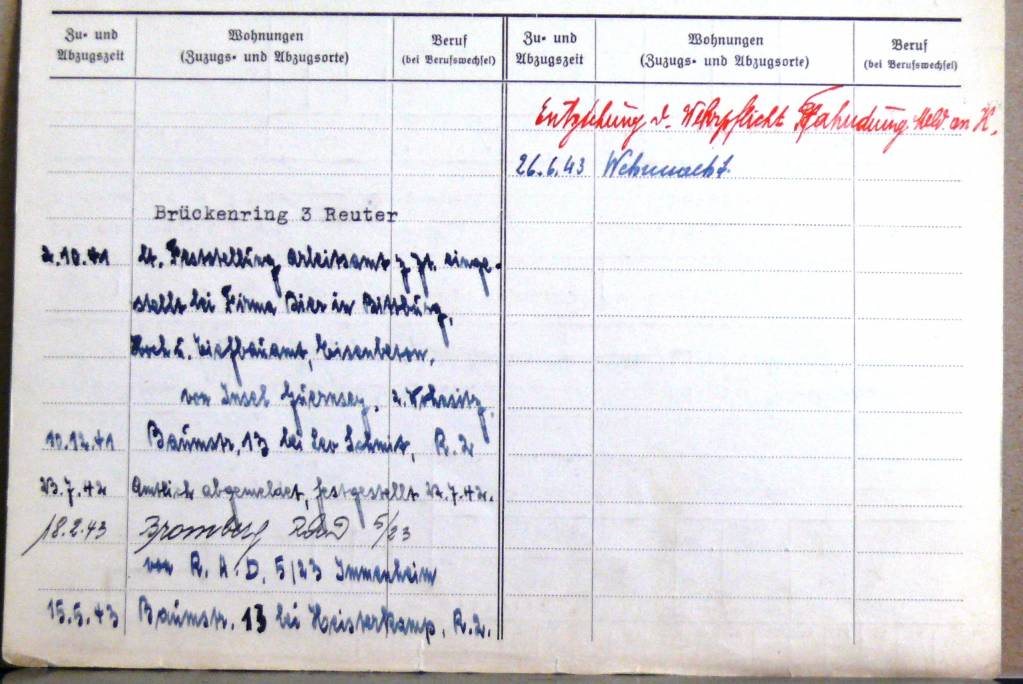 Zu- und Abzugszeit
Wohnungen (Zuzugs- und Abzugsorte)
Beruf (bei Berufswechsel)
Zu- und Abzugszeit
Wohnungen (Zuzugs- und Abzugsorte)
Beruf (bei Berufswechsel)
Brückenring 3 Reuter
2.10.41 Lt. Feststellung Arbeitsamt z. Zt. einge-
stellt bei Firma Bier in Bittburg,
Hoch u. Tiefbauamt, Eisenbeton,
von Insel Guernsey, 2. Wohnsitz,
10.12.41 Baumstr. 13 bei Leo Schmit, R.2
23.7.42 Amtlich abgemeldet, festgestellt 22.7.42.
18.2.43 Bromberg RAD 5/23
von R.A.D. 5/23 Immenheim
15.5.43 Baumstr. 13 bei Heisterkamp, R.2.
Entziehung d. Wehrpflicht Fahndung Meld. an K.
26.6.43 Wehrmacht